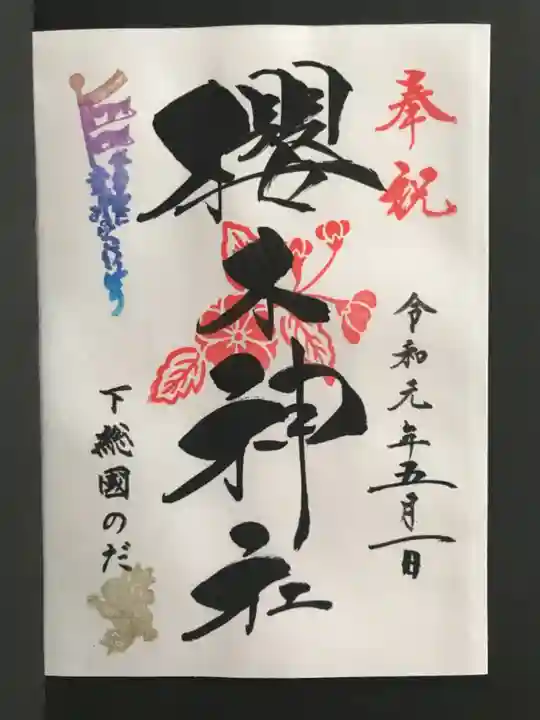 奉祝
令和元年五月一日
櫻木神社
下總國のだ